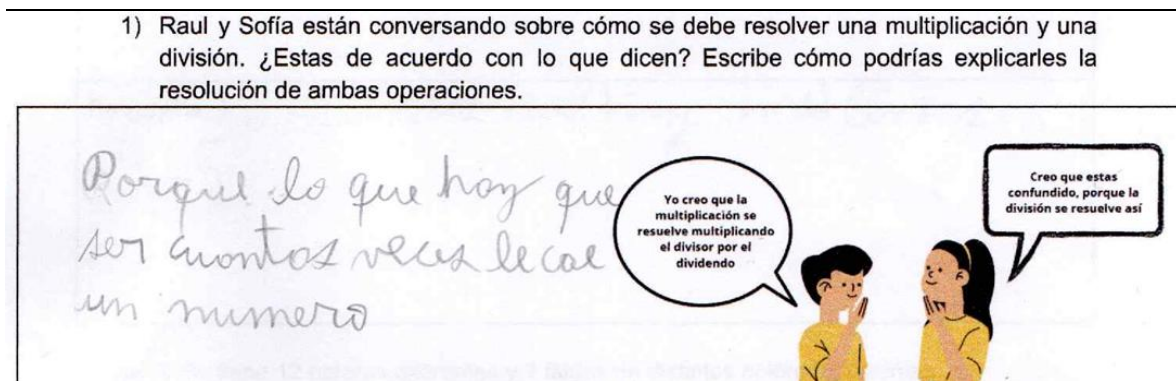 1) Raul y Sofía están conversando sobre cómo se debe resolver una multiplicación y una
división. ¿Estas de acuerdo con lo que dicen? Escribe cómo podrías explicarles la
resolución de ambas operaciones.
Porque lo que hay que
ser cuantos veces le cae
un numero
Yo creo que la
multiplicación se
resuelve multiplicando
el divisor por el
dividendo
Creo que estas
confundido, porque la
división se resuelve así